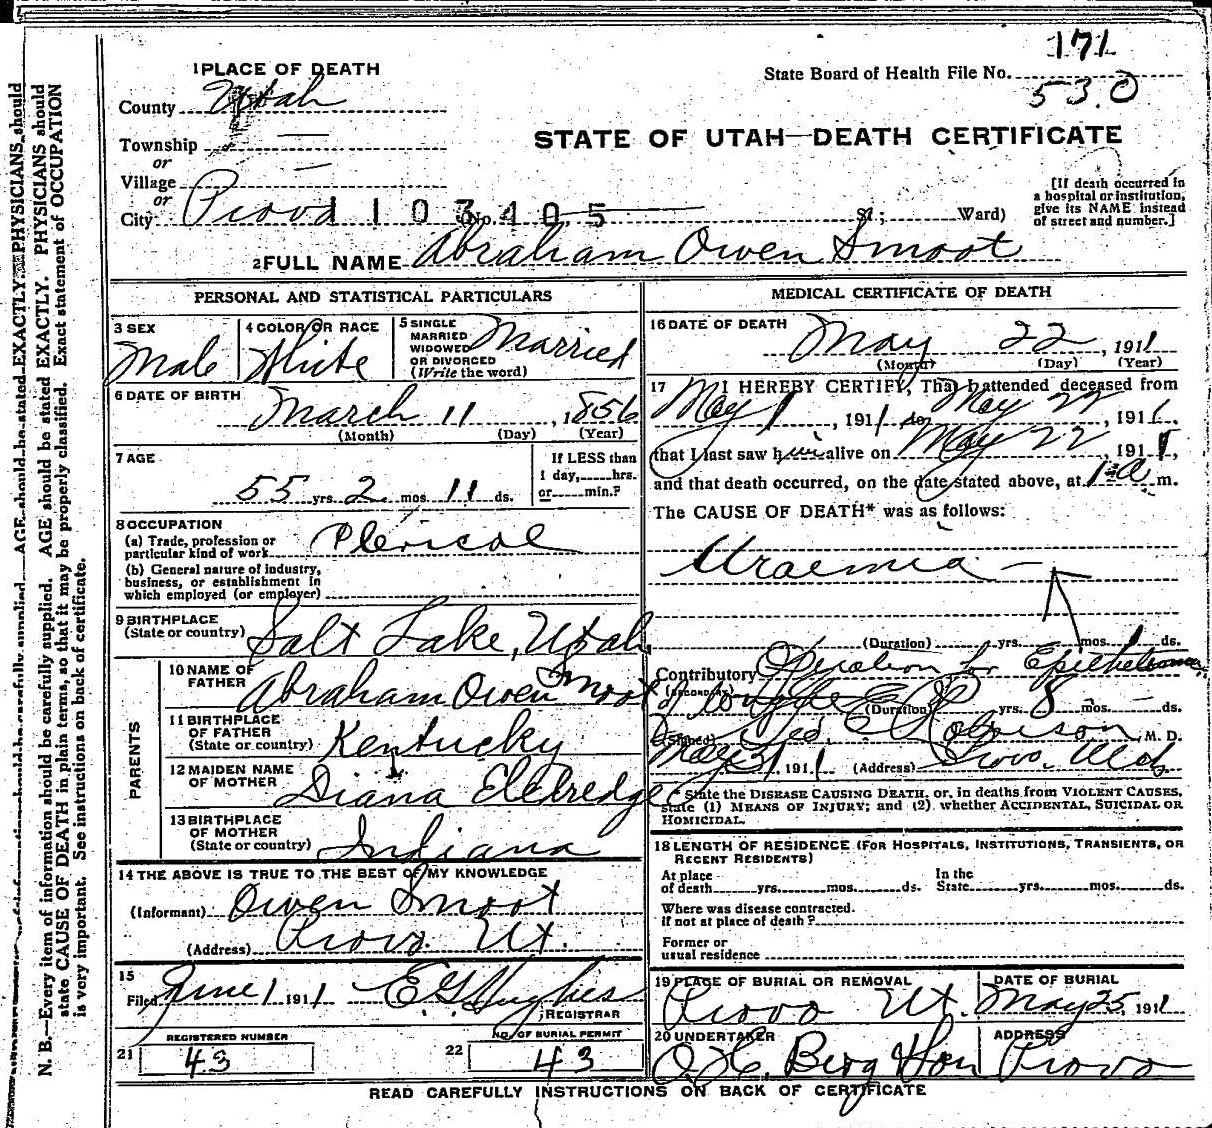 171
State Board of Health File No.
530
1 PLACE OF DEATH
County Utah
STATE OF UTAH—DEATH CERTIFICATE
Township
or
Village
or
City Provo 103405 No. St.; Ward)
[If death occurred in
a hospital or institution,
give its NAME instead
of street and number.]
2 FULL NAME Abraham Owen Smoot
PERSONAL AND STATISTICAL PARTICULARS
3 SEX
Male
4 COLOR OR RACE
White
5 SINGLE
MARRIED
WIDOWED
OR DIVORCED
(Write the word)
Married
6 DATE OF BIRTH
March 11, 1856
(Month) (Day) (Year)
7 AGE
55 yrs. 2 mos. 11 ds.
If LESS than
1 day, hrs.
or min.?
8 OCCUPATION
(a) Trade, profession or
particular kind of work Clerical
(b) General nature of industry,
business, or establishment in
which employed (or employer)
9 BIRTHPLACE
(State or country) Salt Lake, Utah
PARENTS
10 NAME OF
FATHER Abraham Owen Smoot
11 BIRTHPLACE
OF FATHER
(State or country) Kentucky
12 MAIDEN NAME
OF MOTHER Diana Eldredge
13 BIRTHPLACE
OF MOTHER
(State or country) Indiana
14 THE ABOVE IS TRUE TO THE BEST OF MY KNOWLEDGE
(Informant) Owen Smoot
(Address) Provo. Ut.
15
Filed June 1 1911 E G Hughes
REGISTRAR
REGISTERED NUMBER
21 43
NO. OF BURIAL PERMIT
22 43
MEDICAL CERTIFICATE OF DEATH
16 DATE OF DEATH
May 22, 1911
(Month) (Day) (Year)
17 I HEREBY CERTIFY, That I attended deceased from
May 1, 1911 to May 22, 1911.
that I last saw him alive on May 22, 1911,
and that death occurred, on the date stated above, at 1 a m.
The CAUSE OF DEATH* was as follows:
Uraemia
(Duration) yrs. mos. 1 ds.
Contributory Operation for Epithelioma
(SECONDARY)
of tongue (Duration) yrs. 8 mos. ds.
(Signed) Geo. E Robison, M. D.
May 31 1911 (Address) Provo, Utah
*State the DISEASE CAUSING DEATH, or, in deaths from VIOLENT CAUSES,
state (1) MEANS OF INJURY; and (2) whether ACCIDENTAL, SUICIDAL OR
HOMICIDAL.
18 LENGTH OF RESIDENCE (FOR HOSPITALS, INSTITUTIONS, TRANSIENTS, OR
RECENT RESIDENTS)
At place
of death yrs. mos. ds.
In the
State yrs. mos. ds.
Where was disease contracted.
if not at place of death?
Former or
usual residence
19 PLACE OF BURIAL OR REMOVAL
Provo Ut.
DATE OF BURIAL
May 25, 1911
20 UNDERTAKER
O. H. Berg & Son
ADDRESS
Provo
READ CAREFULLY INSTRUCTIONS ON BACK OF CERTIFICATE
N. B.—Every item of information should be carefully supplied. AGE should be stated EXACTLY. PHYSICIANS should
state CAUSE OF DEATH in plain terms, so that it may be properly classified. Exact statement of OCCUPATION
is very important. See instructions on back of certificate.